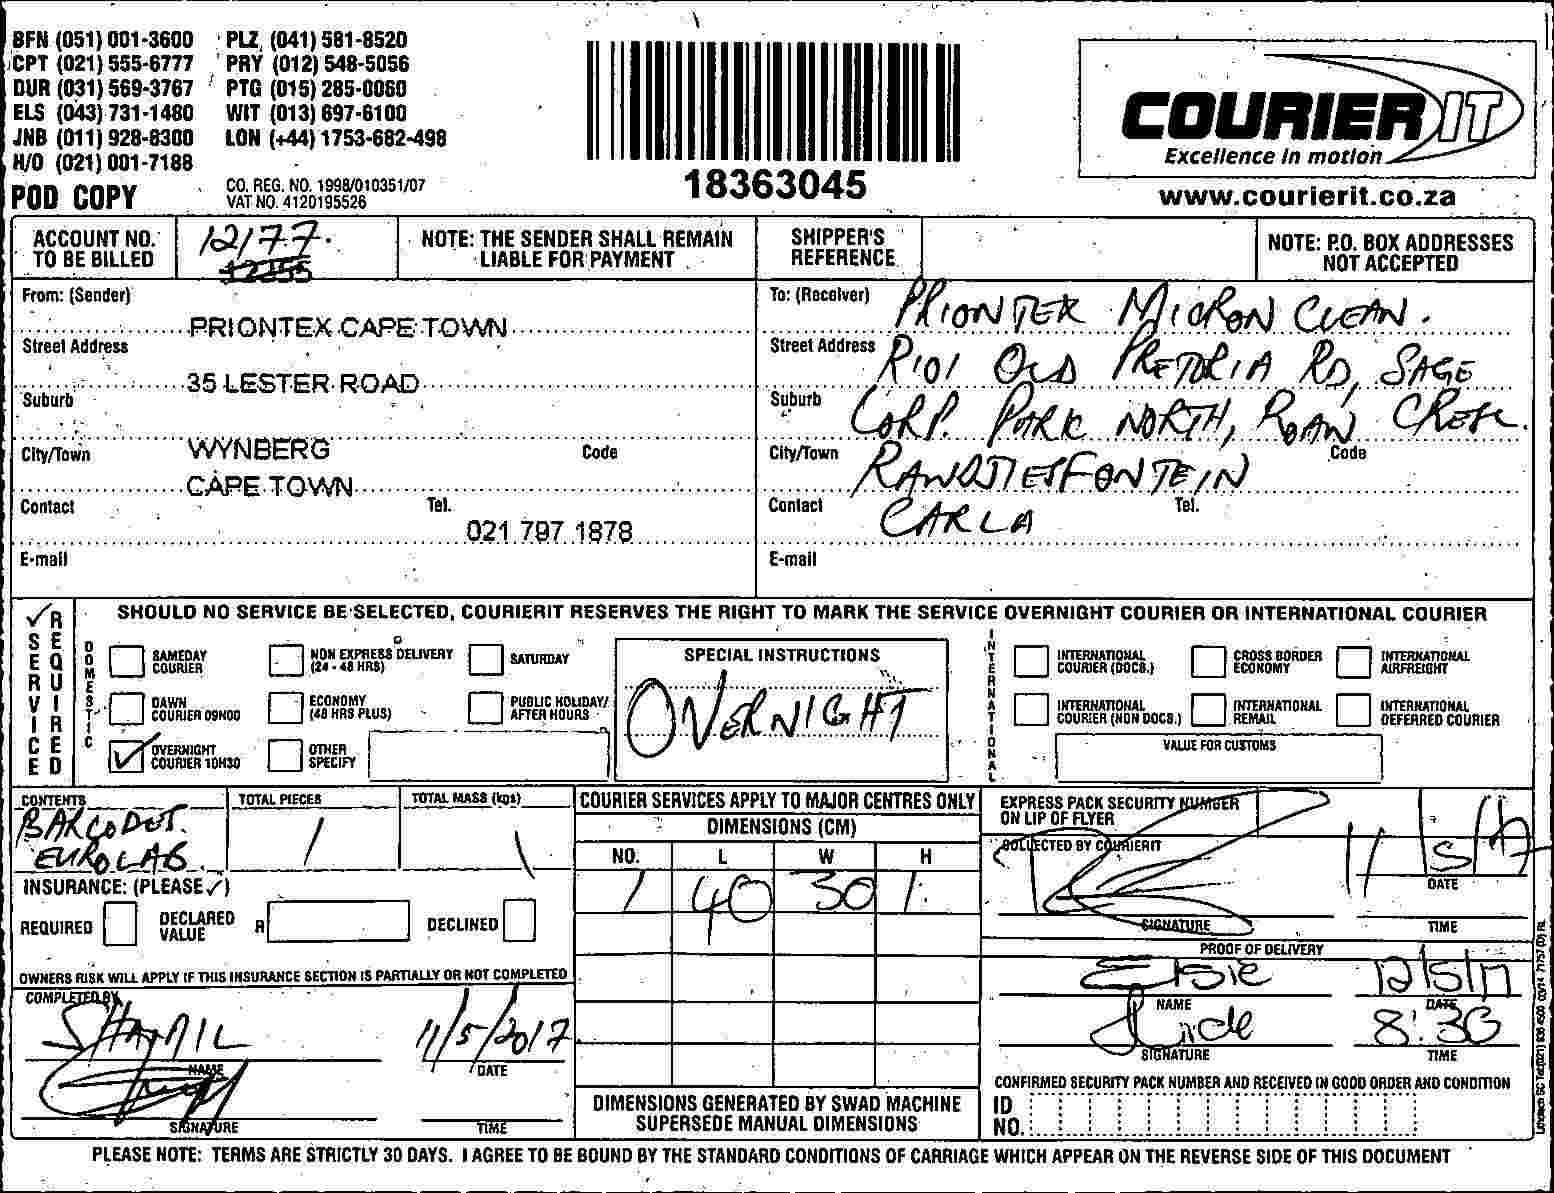 BFN (051) 001-3600 PLZ (041) 581-8520
CPT (021) 555-6777 PRY (012) 548-5056
DUR (031) 569-3767 PTG (015) 285-0060
ELS (043) 731-1480 WIT (013) 697-6100
JNB (011) 928-8300 LON (+44) 1753-682-498
H/O (021) 001-7188
POD COPY
CO. REG. NO. 1998/010351/07
VAT NO. 4120195526
18363045
COURIER IT
Excellence in motion
www.courierit.co.za
ACCOUNT NO. TO BE BILLED
12177
NOTE: THE SENDER SHALL REMAIN LIABLE FOR PAYMENT
SHIPPER'S REFERENCE
NOTE: P.O. BOX ADDRESSES NOT ACCEPTED
From: (Sender)
PRIONTEX CAPE TOWN
Street Address
35 LESTER ROAD
Suburb
WYNBERG
City/Town Code
CAPE TOWN
Contact Tel.
021 797 1878
E-mail
To: (Receiver) PRIONTEX MICRON CLEAN.
Street Address R101 OLD PRETORIA RD, SAGE
Suburb CORP. PARK NORTH, ROAN CRESC.
City/Town RANDJIESFONTEIN Code
Contact CARLA Tel.
E-mail
SERVICE REQUIRED
SHOULD NO SERVICE BE SELECTED, COURIERIT RESERVES THE RIGHT TO MARK THE SERVICE OVERNIGHT COURIER OR INTERNATIONAL COURIER
DOMESTIC
SAMEDAY COURIER
NON EXPRESS DELIVERY (24 - 48 HRS)
SATURDAY
DAWN COURIER 09H00
ECONOMY (48 HRS PLUS)
PUBLIC HOLIDAY/ AFTER HOURS
OVERNIGHT COURIER 10H30
OTHER SPECIFY
SPECIAL INSTRUCTIONS
OVERNIGHT
INTERNATIONAL
INTERNATIONAL COURIER (DOCS.)
CROSS BORDER ECONOMY
INTERNATIONAL AIRFREIGHT
INTERNATIONAL COURIER (NON DOCS.)
INTERNATIONAL REMAIL
INTERNATIONAL DEFERRED COURIER
VALUE FOR CUSTOMS
CONTENTS
BARCODES.
EUROLAB.
TOTAL PIECES
1
TOTAL MASS (kgs)
1
INSURANCE: (PLEASE ✓)
REQUIRED
DECLARED VALUE R
DECLINED
OWNERS RISK WILL APPLY IF THIS INSURANCE SECTION IS PARTIALLY OR NOT COMPLETED
COMPLETED BY
SHAMIL 11/5/2017
NAME DATE
SIGNATURE TIME
COURIER SERVICES APPLY TO MAJOR CENTRES ONLY
DIMENSIONS (CM)
NO. L W H
1 40 30 1
DIMENSIONS GENERATED BY SWAD MACHINE
SUPERSEDE MANUAL DIMENSIONS
EXPRESS PACK SECURITY NUMBER
ON LIP OF FLYER
COLLECTED BY COURIERIT
11/5/17
DATE
SIGNATURE TIME
PROOF OF DELIVERY
Elsie 12/5/17
NAME DATE
8:30
SIGNATURE TIME
CONFIRMED SECURITY PACK NUMBER AND RECEIVED IN GOOD ORDER AND CONDITION
ID NO.
PLEASE NOTE: TERMS ARE STRICTLY 30 DAYS. I AGREE TO BE BOUND BY THE STANDARD CONDITIONS OF CARRIAGE WHICH APPEAR ON THE REVERSE SIDE OF THIS DOCUMENT